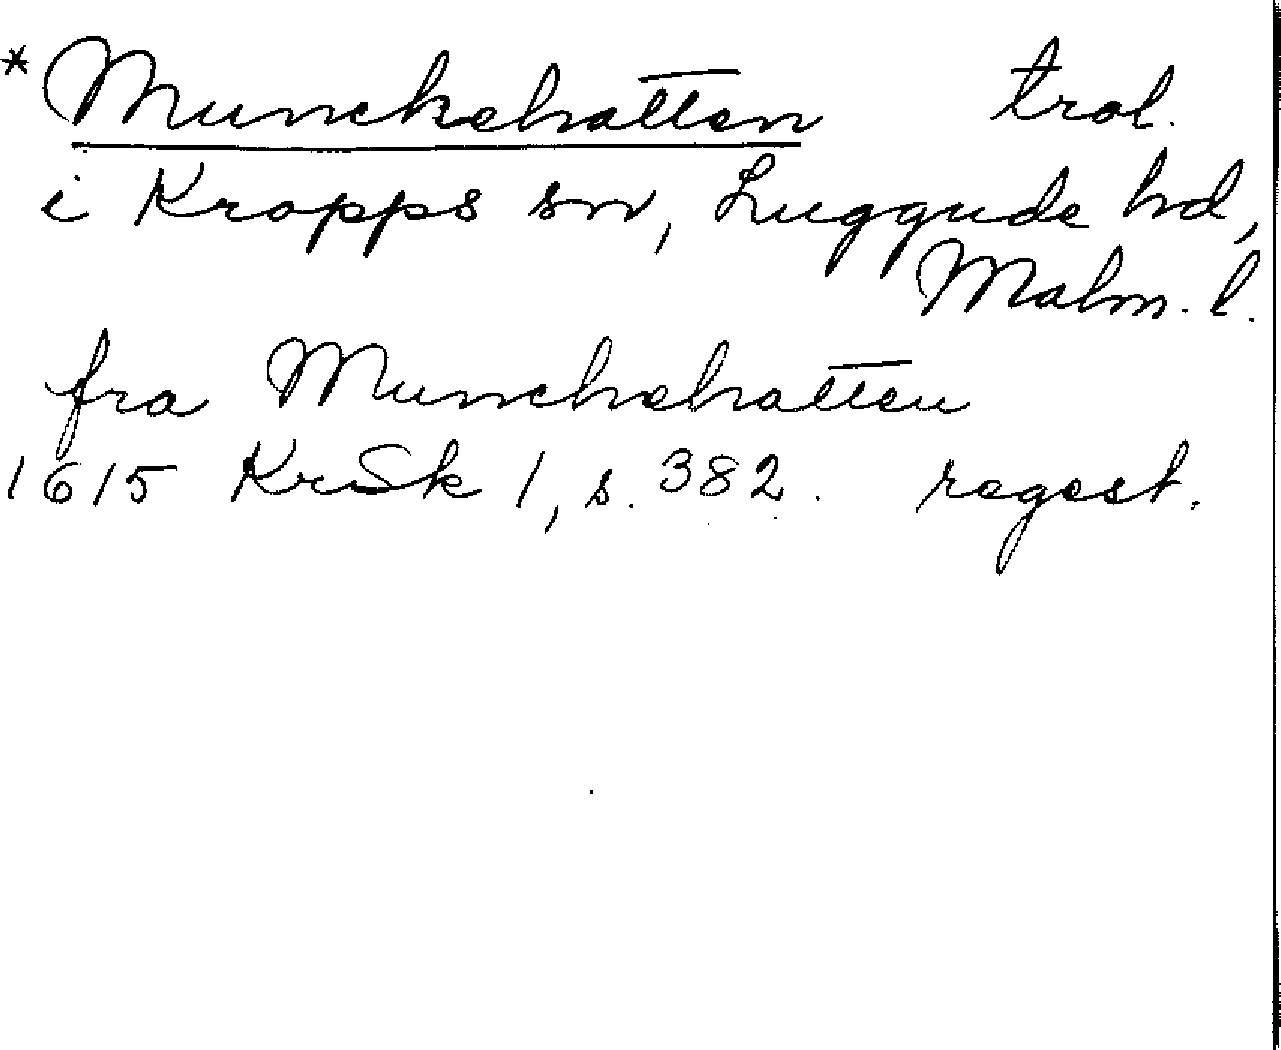 *Munckehatten trol.
i Kropps sn, Luggude hd,
Malm. l.
fra Munckehatten
1615 KrSk 1, s. 382. regest.